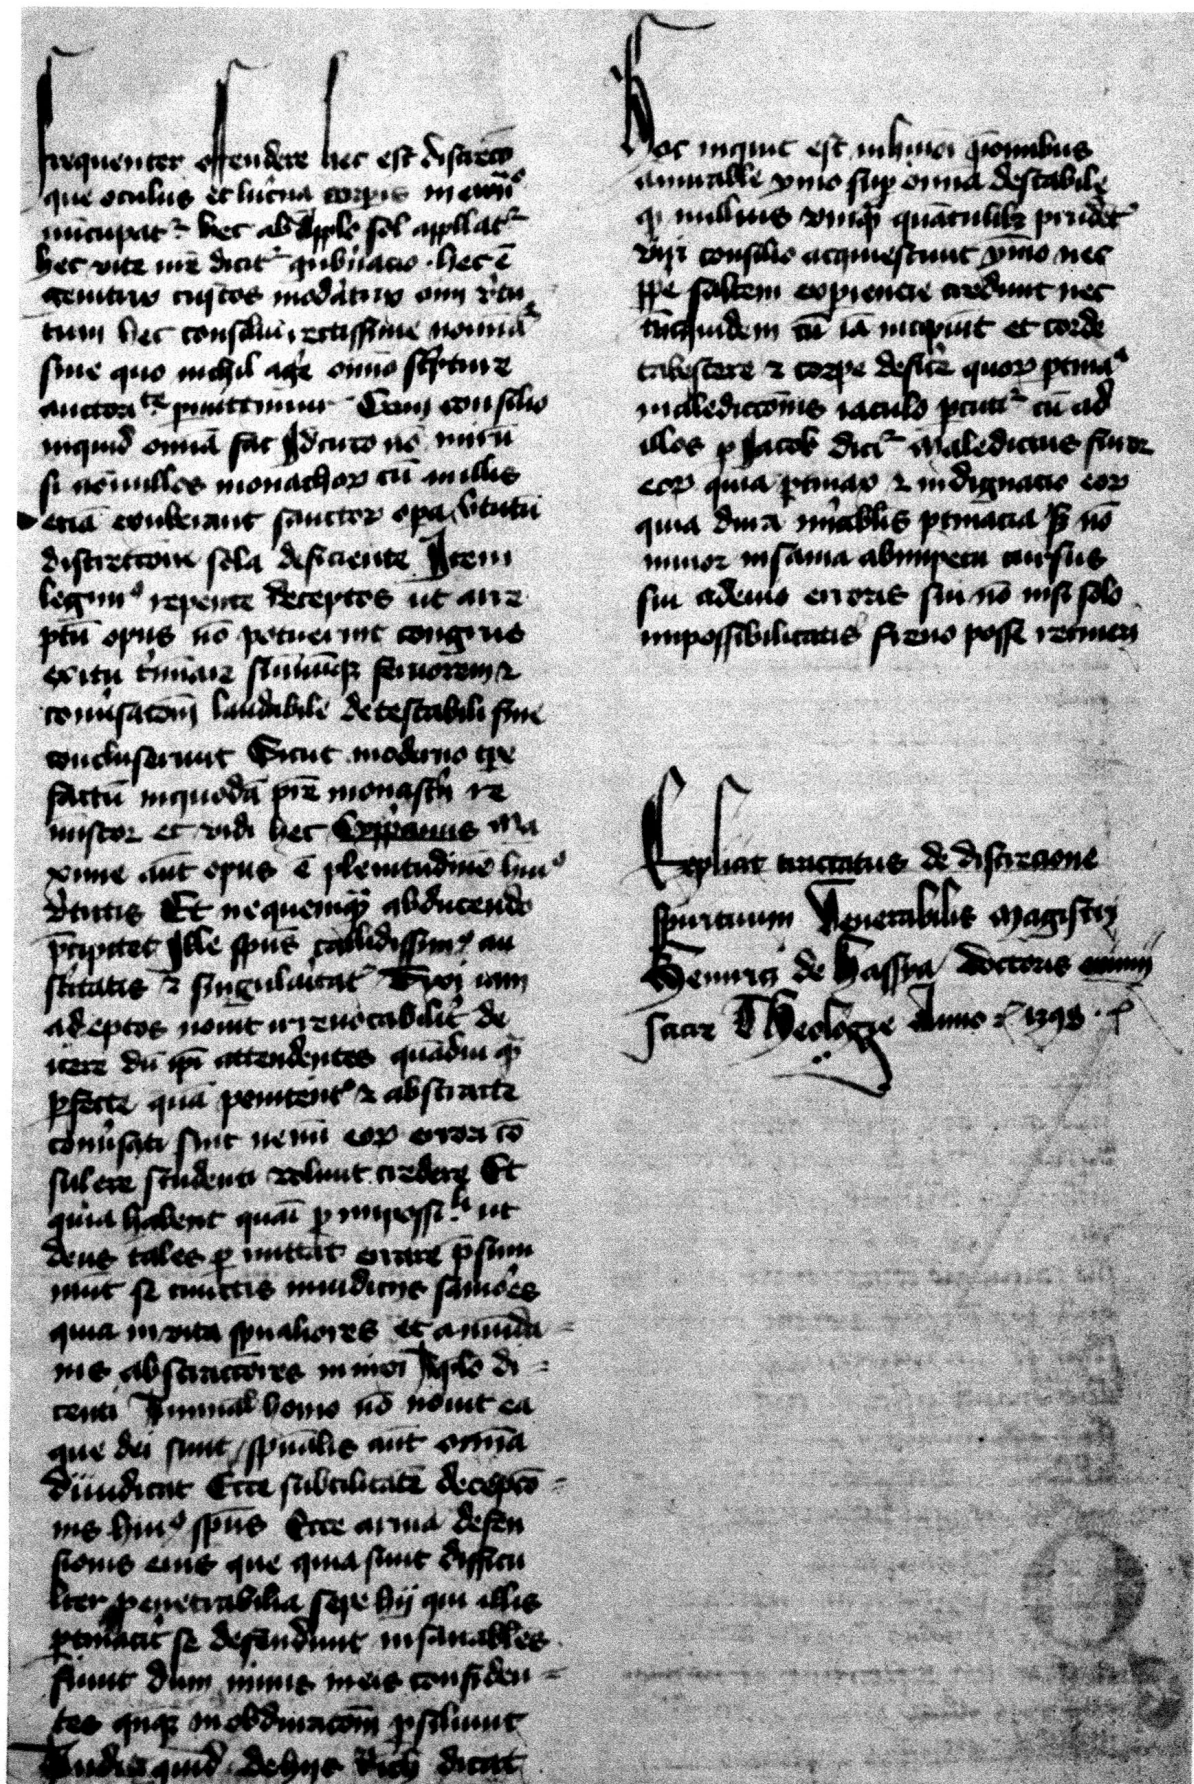 frequenter ostendere hec est discreto
que oculus et lucna corpis in ewno
nucupat hec ab applo sol appllat
hec vite nre dicit gubnacio hec e
genitrix custos modatrix oim vtu
tum hec consiliu rectissime noiat
sine quo nichil age omo scpture
auctorite pmittimur Cum consilio
inquid omia fac Idcirco no miru
si nonullos monachor cu nullis
etia exuberant sanctor opa vtutu
discrecone sola deficiente Item
legimo repente deceptos ut arre
ptu opus no potuerint congruo
exitu tminare summuq feruorem et
conusacom laudabile detestabili fine
concluserunt Sicut moderno tpe
factu in quoda pre monasty re
miscor et vidi hec Cypianus Ma
xime aut opus e plenitudine huio
vtutis Et ne quemq abducendo
pcipitet Ille spus callidissimo au
steritatis et singularitat
adeptos nouit irreuocabilit de
icere du ipi attendentes quadiu q
pfecte qua penitento et abstracte
conusati sint nemi eor errori co
sulere studenti volunt credere Et
quia habent quasi p impossi li ut
deus tales p mittat errare psum
munt se cunctis in iudicijs saniores
quia in vita spualiores et a munda
nis abstractiores in mei Aplo di
centi Animal homo no nouit ea
que dei sunt spualis aut omia
diiudicat Ecce subtilitate decepco
nis huio spus Ecce arma defen
sionis eius que quia sunt difficu
lter penetrabilia sepe hij qui illis
ptinacit se defendunt insanabiles
fiunt dum nimis meis confiden
tes quoq in obduracom psiliunt
Audi quid de hijs Rich dicat
Hoc inquit est in huiusmoi qonnibus
admirabile ymo sup omia destabile
q nullius vnq quatulibz prudet
viri consilio acquiescunt ymo nec
ppe saltem expiencie credunt nec
tuc quidem cu ia incipiut et corde
tabescere et corpe defice quor ptinaa
maledictonis iaculo pcutit cu ad
illos p Jacob dicit Maledictus furor
eor quia ptinax et indignacio eor
quia dura mirabilis ptinacia s no
minor insania ab impetu cursus
sui ademo erroris sui no nisi solo
impossibilitatis freno posse retineri
Explicit tractatus de discrecione
spirituum Venerabilis Magistri
Heinrici de Hassya doctoris eximij
sacre Theologye Anno 1398